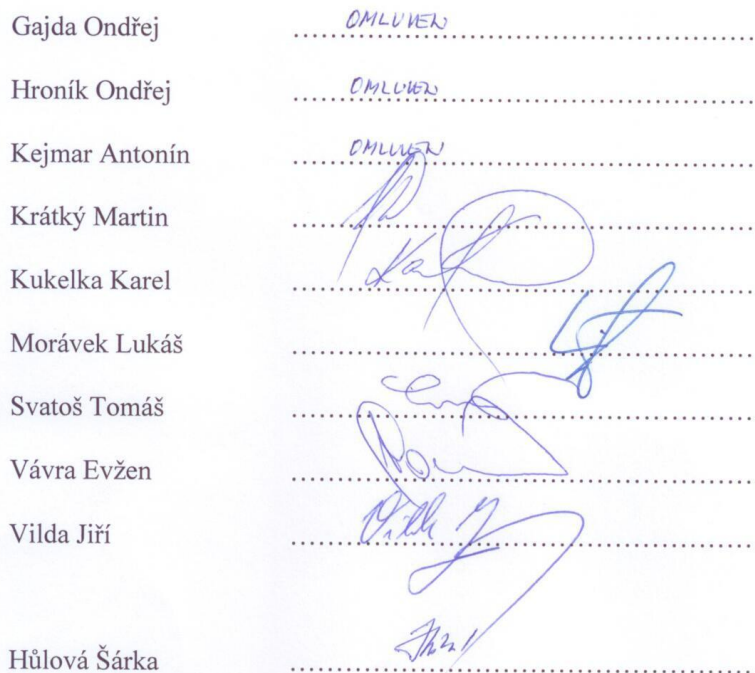 Gajda Ondřej ........ OMLUVEN ........
Hroník Ondřej ........ OMLUVEN ........
Kejmar Antonín ........ OMLUVEN ........
Krátký Martin ........
Kukelka Karel ........
Morávek Lukáš ........
Svatoš Tomáš ........
Vávra Evžen ........
Vilda Jiří ........
Hůlová Šárka ........